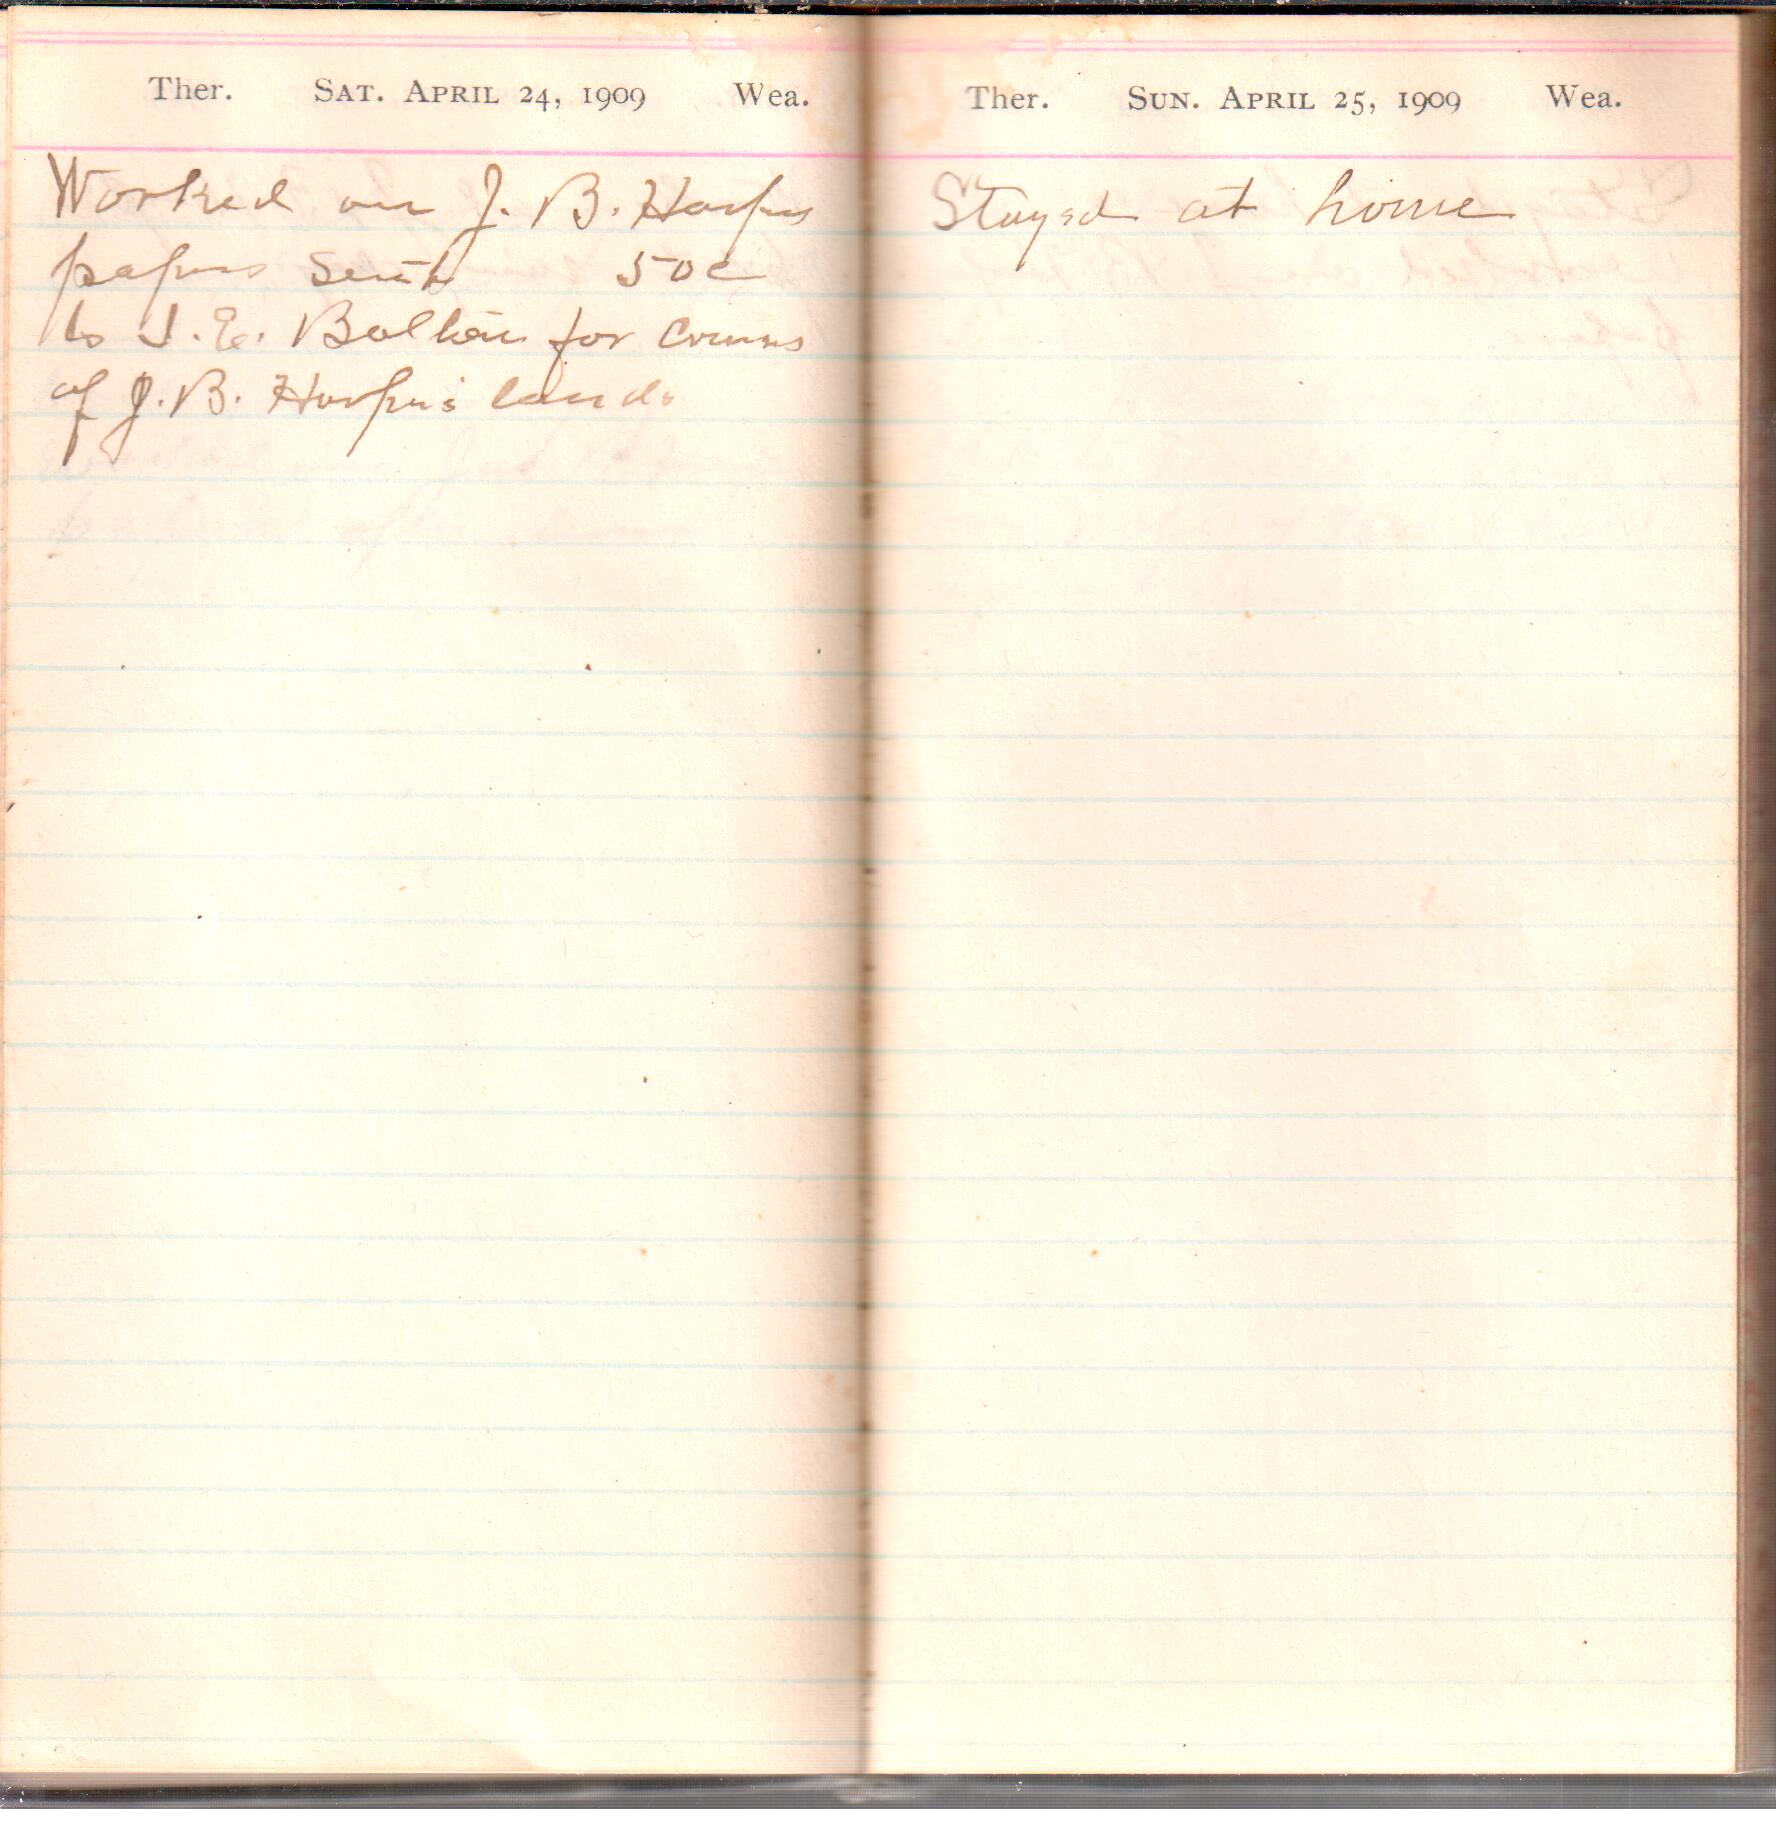 Ther. SAT. APRIL 24, 1909 Wea.
Worked on J. B. Harpers
papers Sent 50c
to J. E. Bolton for
of J. B. Harper's lands
Ther. SUN. APRIL 25, 1909 Wea.
Stayed at home